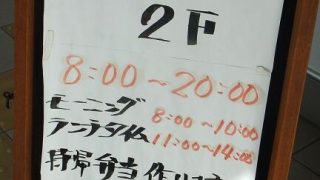 2F
8:00～20:00
モーニング 8:00～10:00
ランチタイム 11:00～14:00
持帰弁当 作ります